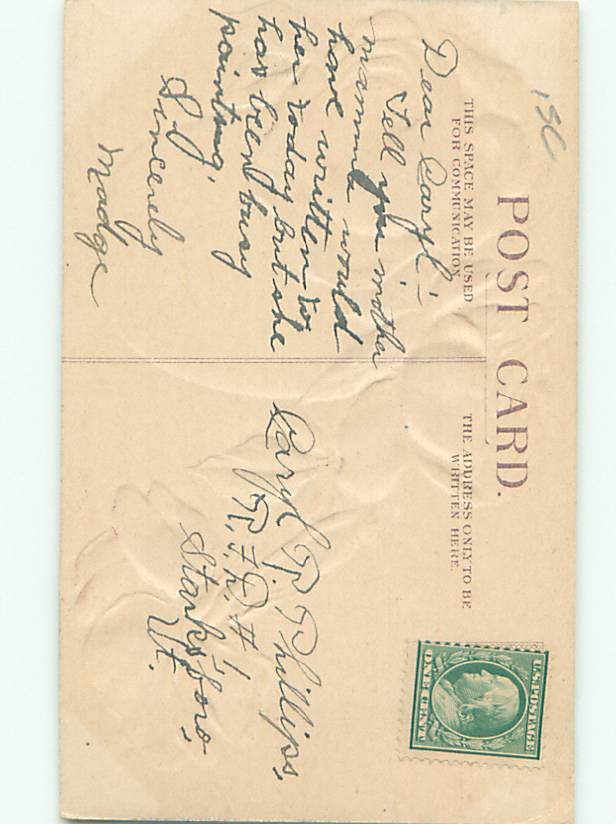 15c
POST CARD.
THIS SPACE MAY BE USED
FOR COMMUNICATION
THE ADDRESS ONLY TO BE
WRITTEN HERE.
Dear Caryl:-
Tell you mother
mamma would
have written to
her today but she
has been busy
painting.
Sincerely
Madge
Caryl P. Phillips,
R.F.D. # 1
Starksboro,
Vt.
U.S. POSTAGE
ONE CENT